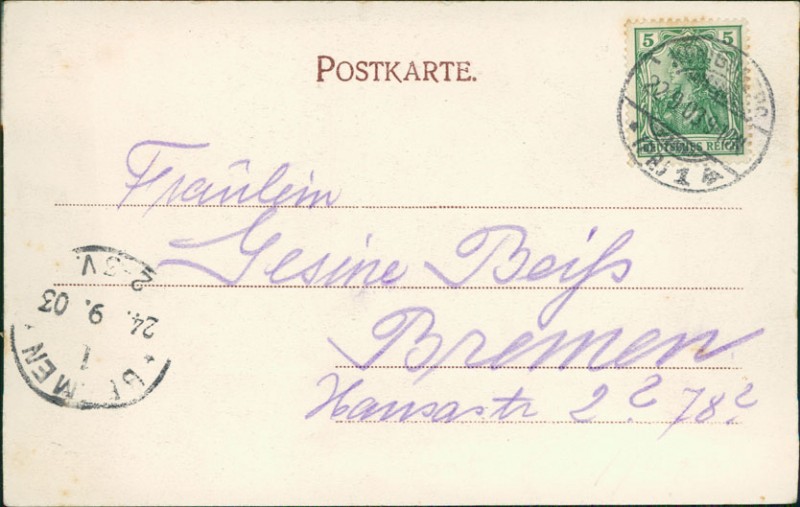 POSTKARTE.
5 5
DEUTSCHES REICH
Fräulein
Gesine Beiß
Bremen
Hansastr 2? 78?
BREMEN
1
24. 9. 03
2-3V.